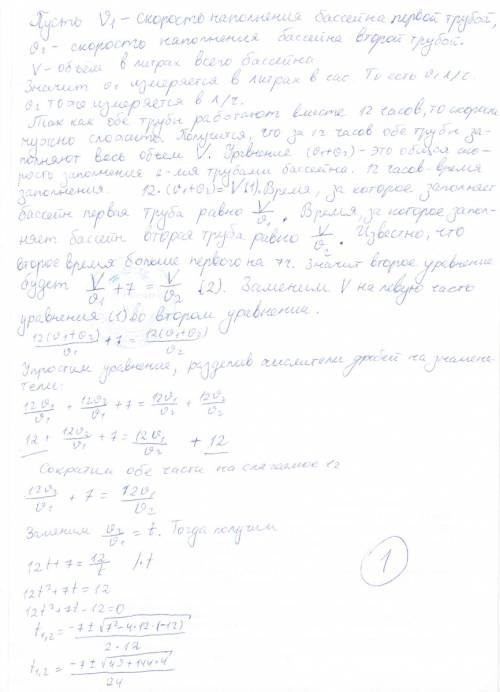 Пусть v₁ - скорость наполнения бассейна первой трубой,
v₂ - скорость наполнения бассейна второй трубой.
V - объем в литрах всего бассейна
Значит v₁ измеряется в литрах в час. То есть v₁ л/ч.
v₂ тоже измеряется в л/ч.
Так как обе трубы работают вместе 12 часов, то скорости
нужно сложить. Получится, что за 12 часов обе трубы за-
полняют весь объем V. Уравнение (v₁+v₂) - это общая ско-
рость заполнения 2-мя трубами бассейна. 12 часов - время
заполнения. 12·(v₁+v₂)=V (1). Время, за которое заполняет
бассейн первая труба равно V/v₁. Время, за которое запол-
няет бассейн вторая труба равно V/v₂. Известно, что
второе время больше первого на 7ч. Значит второе уравнение
будет V/v₁ + 7 = V/v₂ (2). Заменим V на левую часть
уравнения (1) во втором уравнении.
12(v₁+v₂)/v₁ + 7 = 12(v₁+v₂)/v₂
Упростим уравнение, разделив числители дробей на знамена-
тели:
12v₁/v₁ + 12v₂/v₁ + 7 = 12v₁/v₂ + 12v₂/v₂
12 + 12v₂/v₁ + 7 = 12v₁/v₂ + 12
Сократим обе части на слагаемое 12
12v₂/v₁ + 7 = 12v₁/v₂
Заменим v₂/v₁ = t. Тогда получим
12t+7 = 12/t /·t
12t²+7t=12
12t²+7t-12=0
t₁,₂ = (-7±√(7²-4·12·(-12)))/(2·12)
t₁,₂ = (-7±√(49+144·4))/24
1